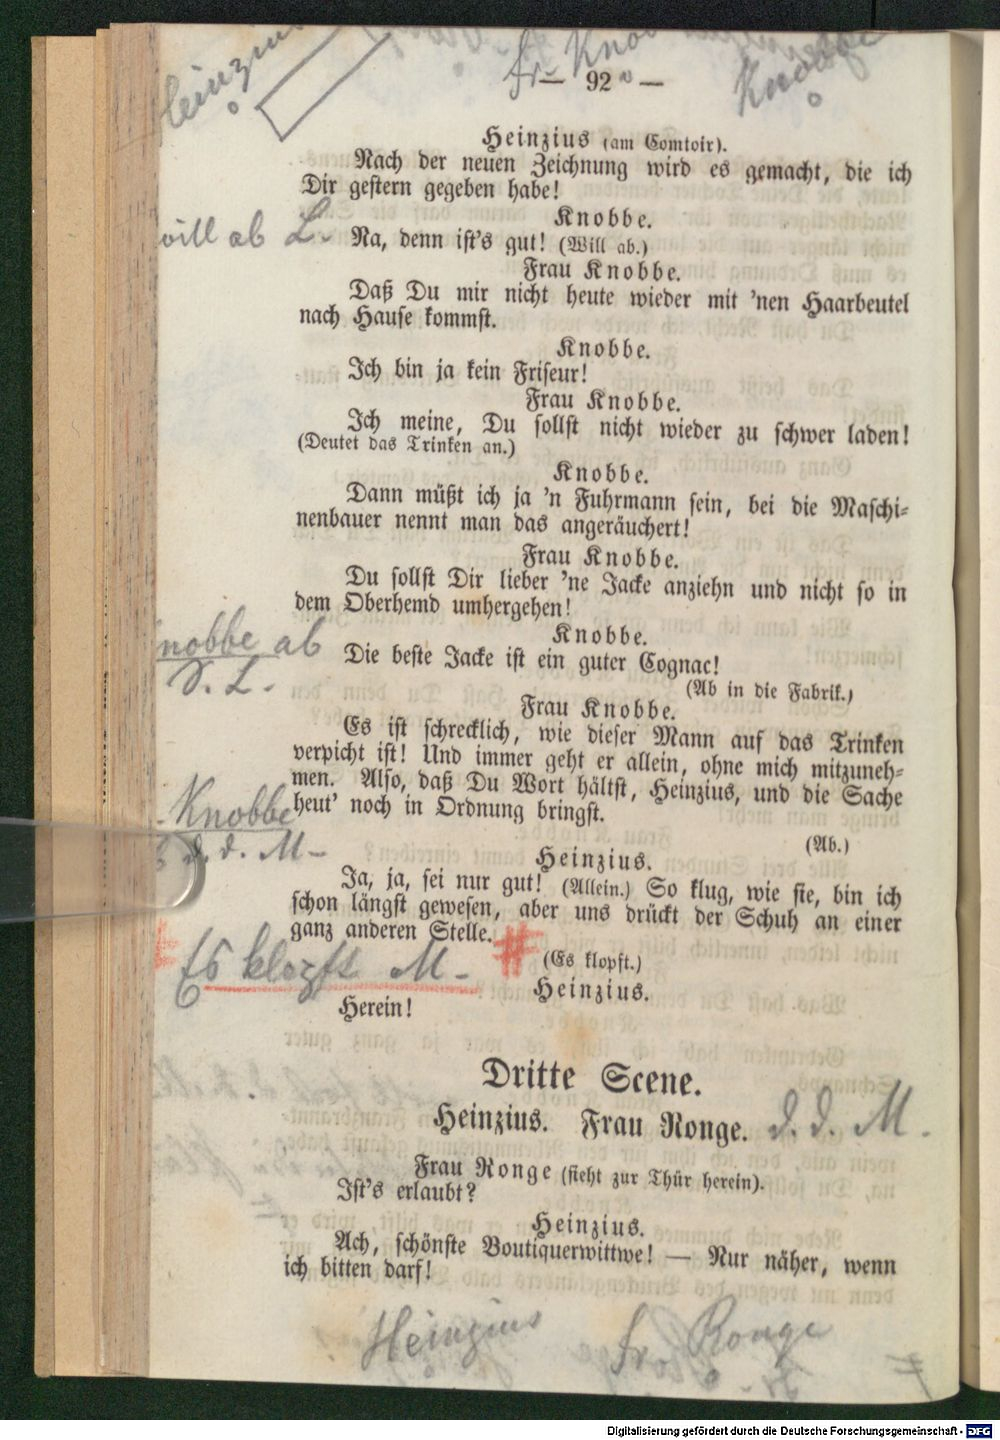 Heinzius
Fr. Knobbe
Knobbe
— 92 —
Heinzius (am Comtoir).
Nach der neuen Zeichnung wird es gemacht, die ich
Dir gestern gegeben habe!
Knobbe.
will ab L.
Na, denn ist's gut! (Will ab.)
Frau Knobbe.
Daß Du mir nicht heute wieder mit 'nen Haarbeutel
nach Hause kommst.
Knobbe.
Ich bin ja kein Friseur!
Frau Knobbe.
Ich meine, Du sollst nicht wieder zu schwer laden!
(Deutet das Trinken an.)
Knobbe.
Dann müßt ich ja 'n Fuhrmann sein, bei die Maschi-
nenbauer nennt man das angeräuchert!
Frau Knobbe.
Du sollst Dir lieber 'ne Jacke anziehn und nicht so in
dem Oberhemd umhergehen!
Knobbe.
Knobbe ab
S. L.
Die beste Jacke ist ein guter Cognac!
(Ab in die Fabrik.)
Frau Knobbe.
Es ist schrecklich, wie dieser Mann auf das Trinken
verpicht ist! Und immer geht er allein, ohne mich mitzuneh-
men. Also, daß Du Wort hältst, Heinzius, und die Sache
heut' noch in Ordnung bringst.
Knobbe
d. d. M
(Ab.)
Heinzius.
Ja, ja, sei nur gut! (Allein.) So klug, wie sie, bin ich
schon längst gewesen, aber uns drückt der Schuh an einer
ganz anderen Stelle. #
Es klopft M
(Es klopft.)
Heinzius.
Herein!
Dritte Scene.
Heinzius. Frau Ronge. d. d. M.
Frau Ronge (sieht zur Thür herein).
Ist's erlaubt?
Heinzius.
Ach, schönste Boutiquerwittwe! — Nur näher, wenn
ich bitten darf!
Heinzius Fr. Ronge
Digitalisierung gefördert durch die Deutsche Forschungsgemeinschaft - DFG